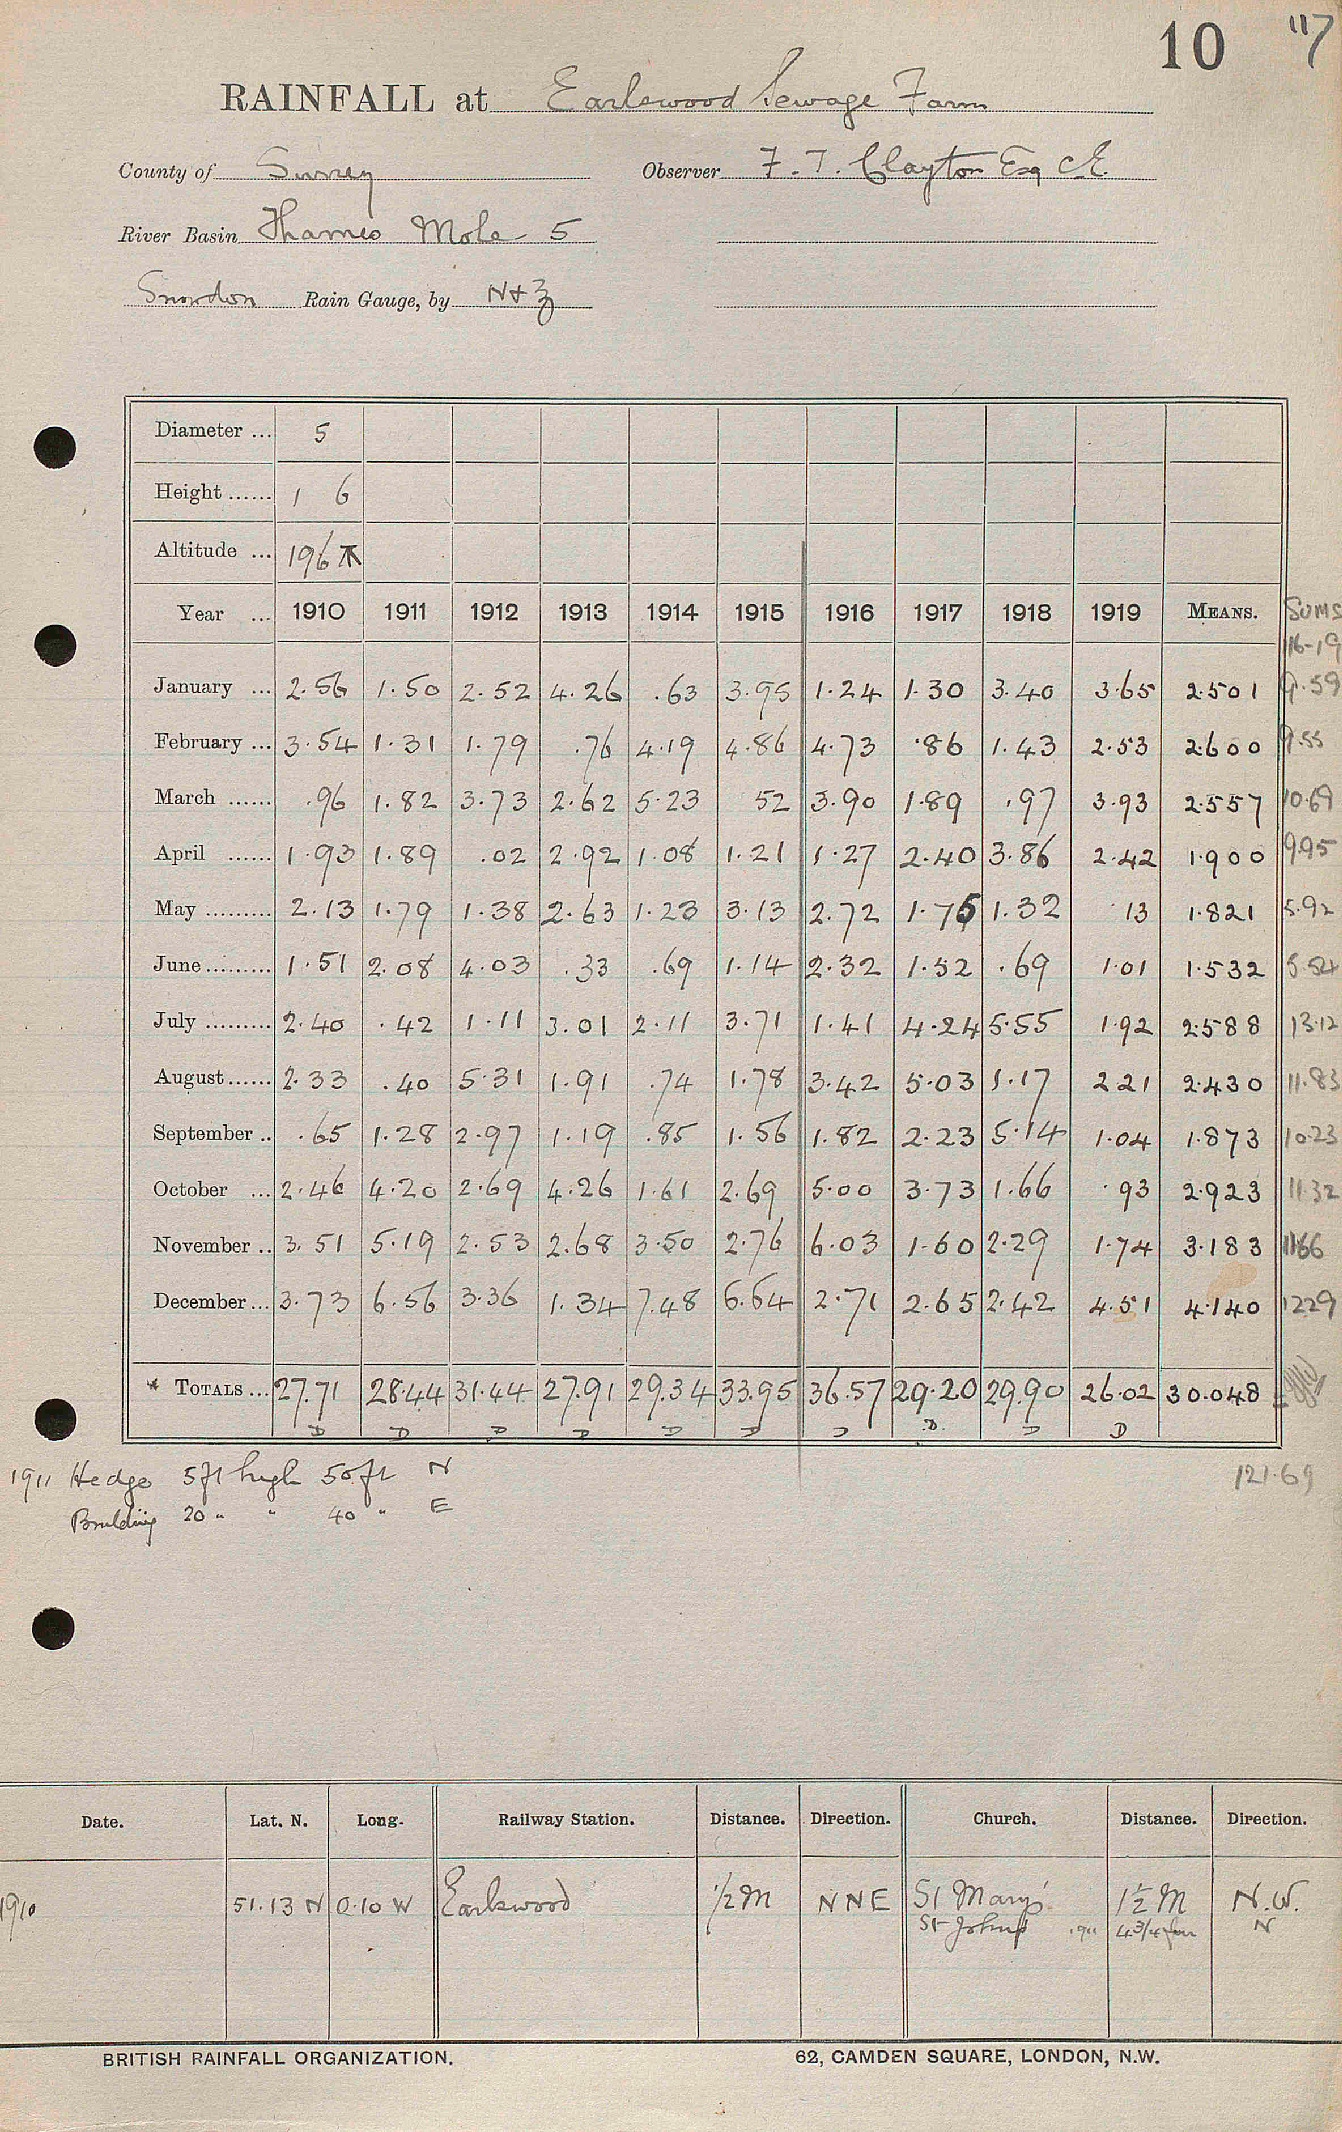 10 117
RAINFALL at Earlswood Sewage Farm
County of Surrey Observer F. T. Clayton Esq CE
River Basin Thames Mole 5
Snowdon Rain Gauge, by N+Z
Diameter ... 5
Height ...... 1 6
Altitude ... 196
Year ... 1910 1911 1912 1913 1914 1915 1916 1917 1918 1919 MEANS. SUMS
16-19
January ... 2.56 1.50 2.52 4.26 .63 3.95 1.24 1.30 3.40 3.65 2.501 9.59
February ... 3.54 1.31 1.79 .76 4.19 4.86 4.73 .86 1.43 2.53 2.600 9.55
March ...... .96 1.82 3.73 2.62 5.23 52 3.90 1.89 .97 3.93 2.557 10.69
April ...... 1.93 1.89 .02 2.92 1.08 1.21 1.27 2.40 3.86 2.42 1.900 9.95
May ......... 2.13 1.79 1.38 2.63 1.23 3.13 2.72 1.75 1.32 .13 1.821 5.92
June ......... 1.51 2.08 4.03 .33 .69 1.14 2.32 1.52 .69 1.01 1.532 5.54
July ......... 2.40 .42 1.11 3.01 2.11 3.71 1.41 4.24 5.55 1.92 2.588 13.12
August ...... 2.33 .40 5.31 1.91 .74 1.78 3.42 5.03 1.17 2.21 2.430 11.83
September .. .65 1.28 2.97 1.19 .85 1.56 1.82 2.23 5.14 1.04 1.873 10.23
October ... 2.46 4.20 2.69 4.26 1.61 2.69 5.00 3.73 1.66 .93 2.923 11.32
November .. 3.51 5.19 2.53 2.68 3.50 2.76 6.03 1.60 2.29 1.74 3.183 11.66
December ... 3.73 6.56 3.36 1.34 7.48 6.64 2.71 2.65 2.42 4.51 4.140 12.29
* TOTALS ... 27.71 28.44 31.44 27.91 29.34 33.95 36.57 29.20 29.90 26.02 30.048
D D D D D D D D. D D
1911 Hedge 5ft high 50ft N 121.69
Building 20 " " 40 " E
Date. Lat. N. Long. Railway Station. Distance. Direction. Church. Distance. Direction.
1910 51.13 N 0.10 W Earlswood 1/2 M NNE St Marys 1 1/2 M N.W.
St Johns 1911 4 3/4 fur N
BRITISH RAINFALL ORGANIZATION. 62, CAMDEN SQUARE, LONDON, N.W.